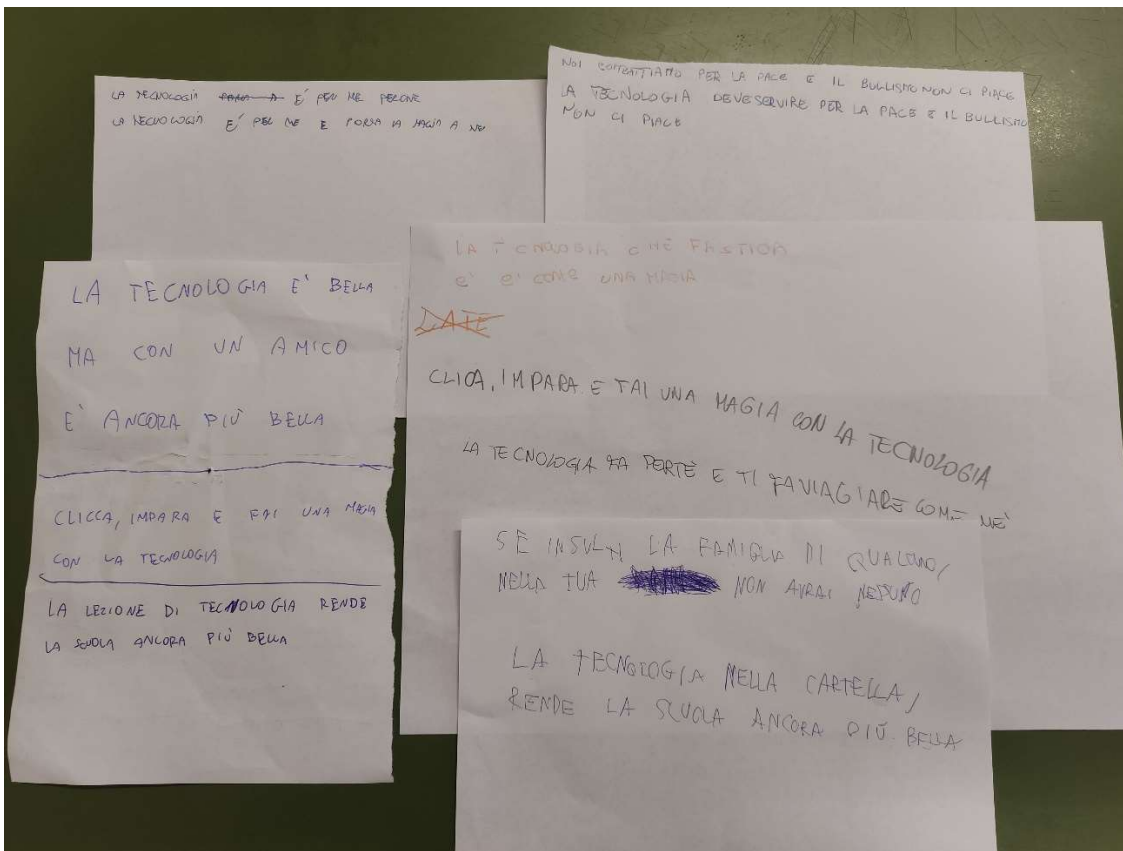 LA TECNOLOGIA E' PER ME PERONE
LA TECNOLOGIA E' PER ME E PORTA LA MAGIA A ME
NOI COMBATTIAMO PER LA PACE E IL BULLISMO NON CI PIACE
LA TECNOLOGIA DEVE SERVIRE PER LA PACE E IL BULLISMO
NON CI PIACE
LA TECNOLOGIA E' BELLA
MA CON UN AMICO
E' ANCORA PIÙ BELLA
CLICCA, IMPARA E FAI UNA MAGIA
CON LA TECNOLOGIA
LA LEZIONE DI TECNOLOGIA RENDE
LA SCUOLA ANCORA PIÙ BELLA
LA TCNOLOGIA CHE FASTIDA
E' E' COME UNA MAGIA
LATE
CLICA, IMPARA E FAI UNA MAGIA CON LA TECNOLOGIA
LA TECNOLOGIA FA PERTE E TI FA VIAGIARE COME ME
SE INSULTI LA FAMIGLIA DI QUALCUNO,
NELLA TUA NON AVRAI NESSUNO
LA TECNOLOGIA NELLA CARTELLA,
RENDE LA SCUOLA ANCORA PIÙ BELLA